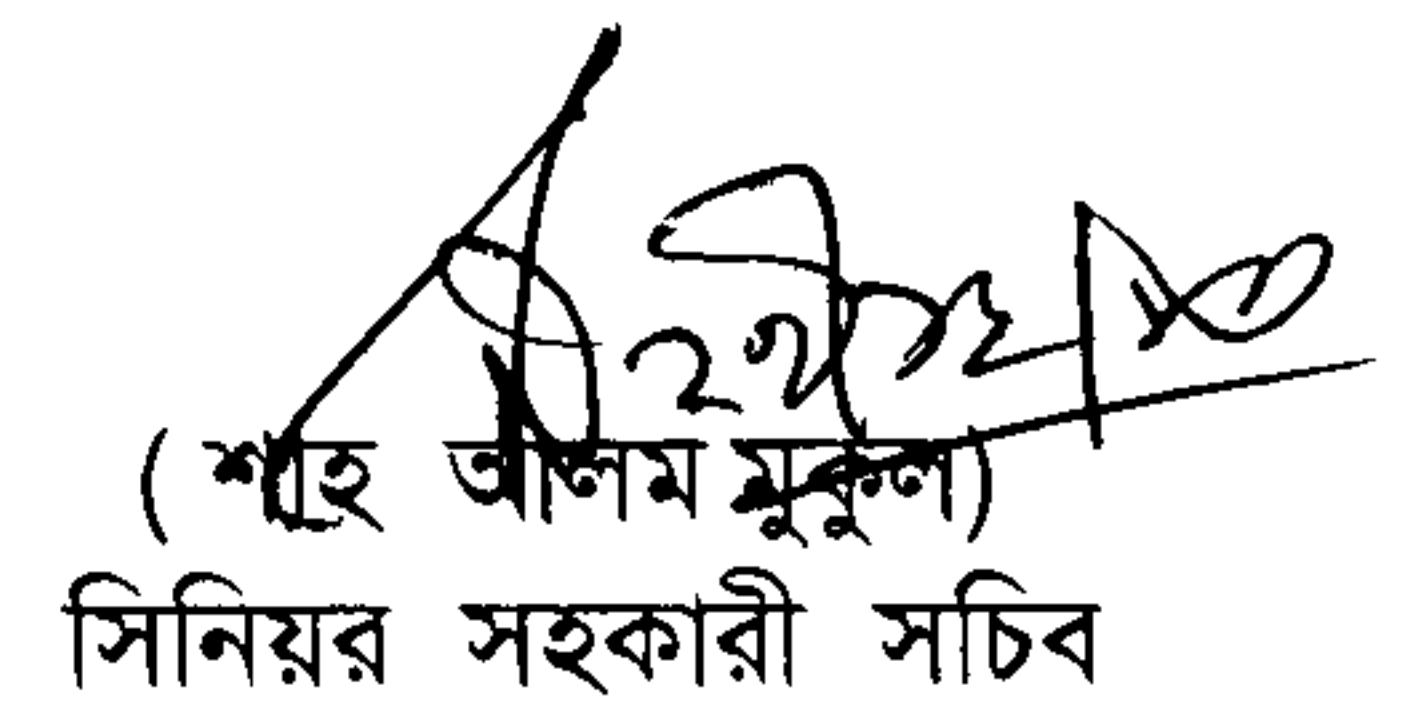 ( শাহ আলম মুকুল)
সিনিয়র সহকারী সচিব